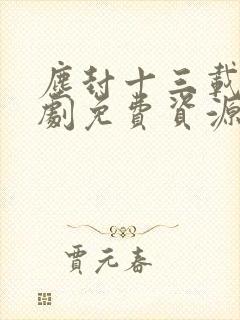 塵封十三載
劇免費資源
賈元春